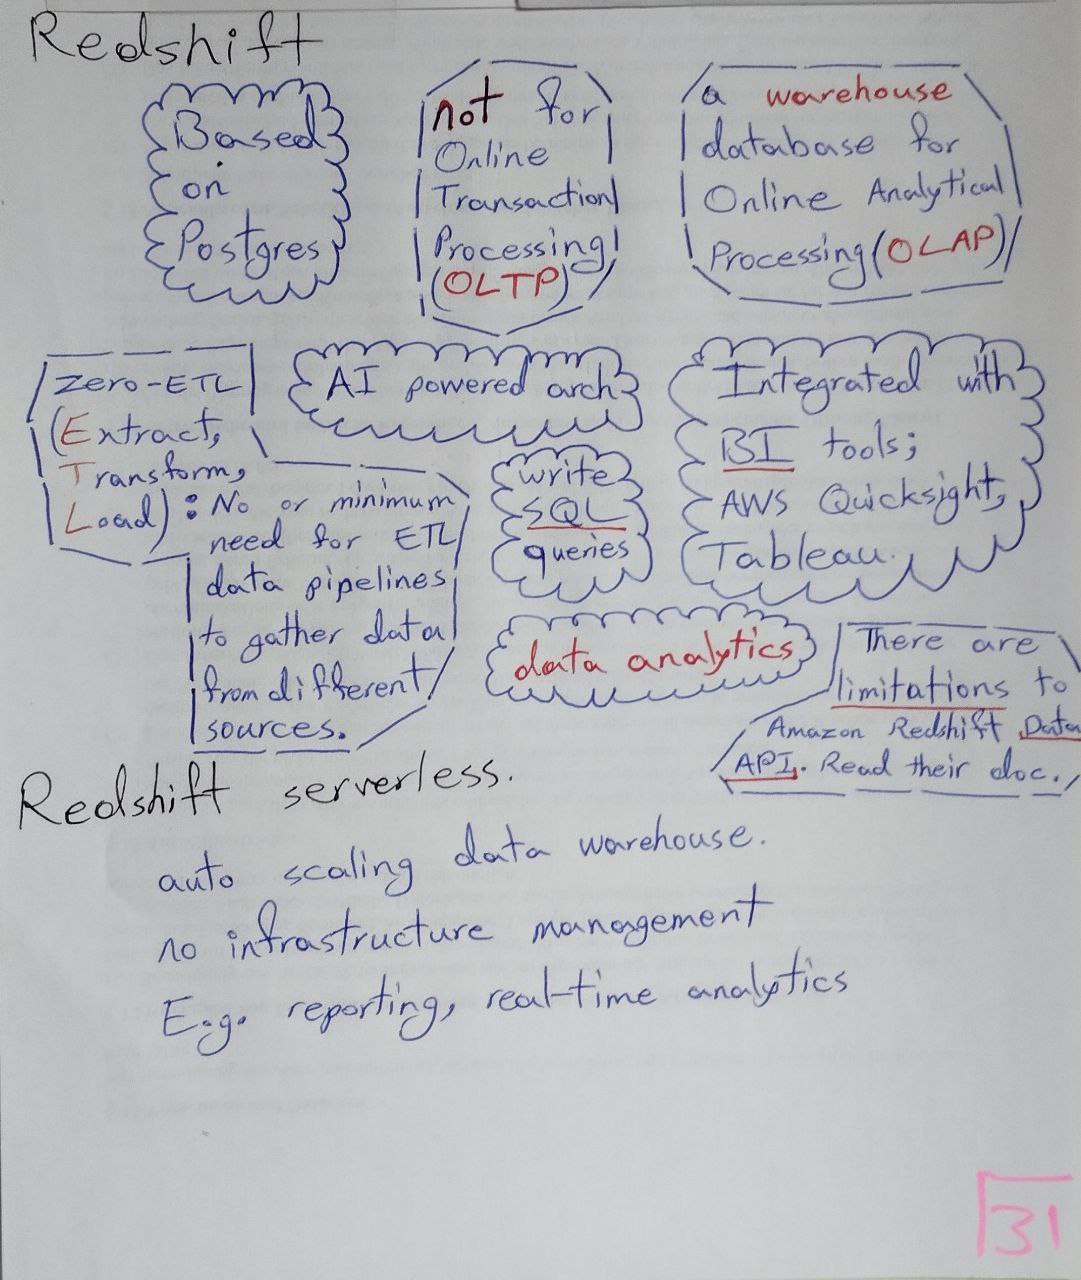 Redshift
Based
on
Postgres
not for
Online
Transaction
Processing
(OLTP)
a warehouse
database for
Online Analytical
Processing (OLAP)
Zero-ETL
(Extract,
Transform,
Load): No or minimum
need for ETL
data pipelines
to gather data
from different
sources.
AI powered arch
write
SQL
queries
Integrated with
BI tools;
AWS Quicksight,
Tableau.
data analytics
There are
limitations to
Amazon Redshift Data
API. Read their doc.
Redshift serverless.
auto scaling data warehouse.
no infrastructure management
E.g. reporting, real-time analytics
31